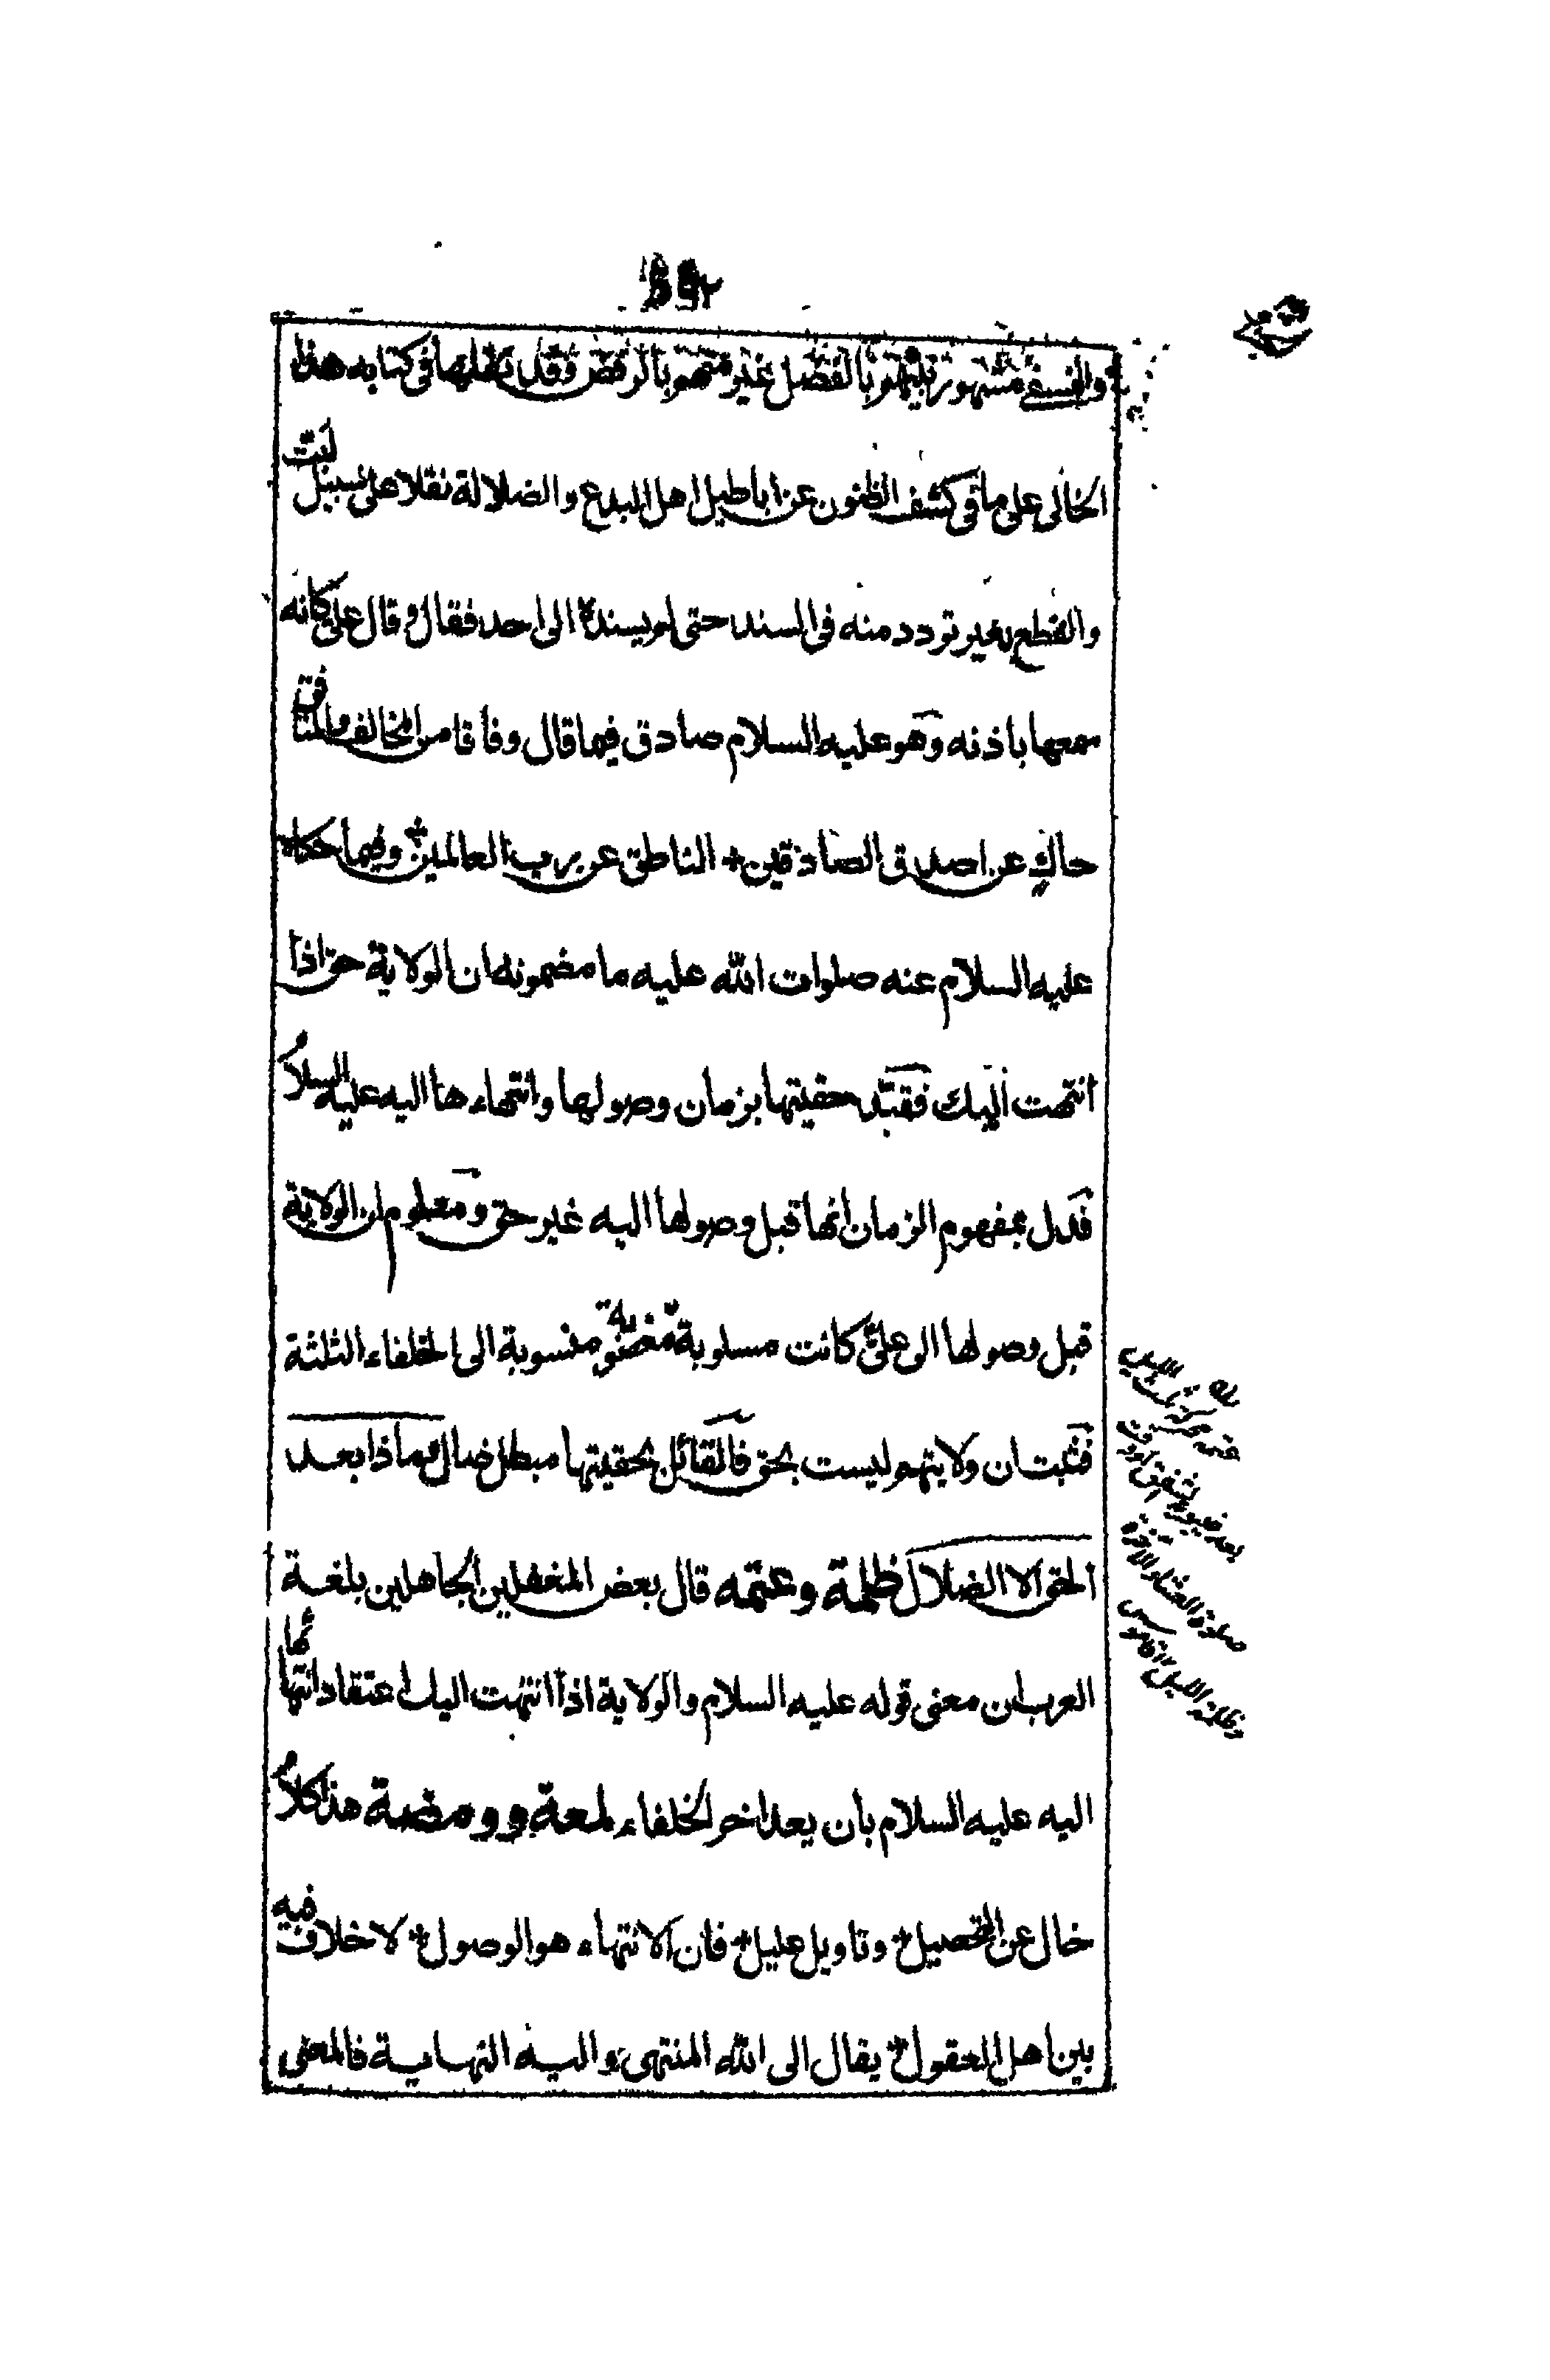 والنسفي مشهور بينهم بالفضل غير متهم بالرفض وقد نقلها في كتابه هذا
الخالي على ما في كشف الظنون عن اباطيل اهل البدع والضلالة نقلا على سبيل البت
والقطع بغير تردد منه في السند حتى لم يسنده الى احد فقال وقال علي كانه
سمعها باذنه وهو عليه السلام صادق فيما قال وفاقا من المخالف والمنافق
حاك عن اصدق الصادقين الناطق عن رب العالمين وفيما حكاه
عليه السلام عنه صلوات الله عليه ما مضمونه ان الولاية حق اذا
انتهت اليك فقيد حقيتها بزمان وصولها وانتهاءها اليه عليه السلام
فدل بمفهوم الزمان انها قبل وصولها اليه غير حق ومعلوم ان الولاية
قبل وصولها الى علي كانت مسلوبة مغصوبة منسوبة الى الخلفاء الثلثة
فثبت ان ولايتهم ليست بحق فالقائل بحقيتها مبطل ضال فماذا بعد
الحق الا الضلال ظلمة وعتمه قال بعض المغفلين الجاهلين بلغة
العرب ان معنى قوله عليه السلام والولاية اذا انتهت اليك اعتقاد انتهائها
اليه عليه السلام بان يعد اخر الخلفاء لمعة وومضة هذا كلام
خال عن التحصيل وتاويل عليل فان الانتهاء هو الوصول لا خلاف فيه
بين اهل العقول يقال الى الله المنتهى واليه النهاية فالمعنى
ثلث الليل
بعد غيبوبة الشفق او وقت
صلوة العشاء الاخرة
وظلمة الليل قاموس